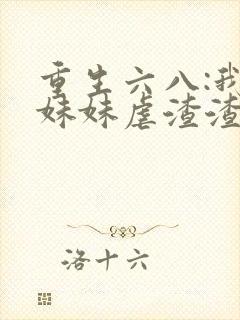 重生六八:我
妹妹虐渣渣
洛十六